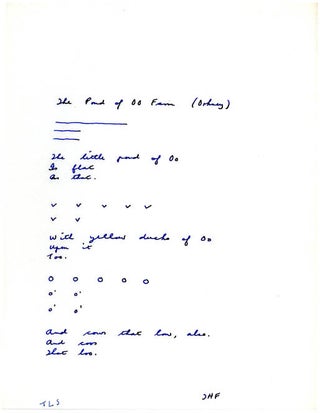 The Pond of Oo Farm (Orkney)
The little pond of Oo
Is flat
As that.
v v v v v
v v
With yellow ducks of Oo
Upon it
Too.
o o o o o
o' o'
o' o'
And cows that low, also.
And coos
That loo.
IHF
TLS